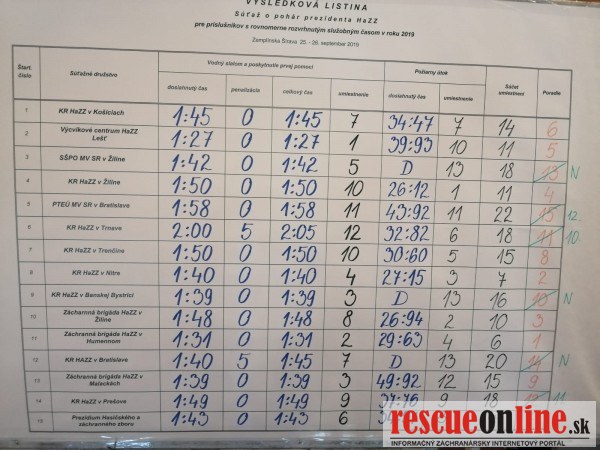 VÝSLEDKOVÁ LISTINA
Súťaž o pohár prezidenta HaZZ
pre príslušníkov s rovnomerne rozvrhnutým služobným časom v roku 2019
Zemplínska Šírava 25. - 26. september 2019
Štart. číslo Súťažné družstvo Vodný slalom a poskytnutie prvej pomoci Požiarny útok Súčet umiestnení Poradie
dosiahnutý čas penalizácie celkový čas umiestnenie dosiahnutý čas umiestnenie
1 KR HaZZ v Košiciach 1:45 0 1:45 7 34:47 7 14 6
2 Výcvikové centrum HaZZ Lešť 1:27 0 1:27 1 39:93 10 11 5
3 SŠPO MV SR v Žiline 1:42 0 1:42 5 D 13 18 13 N
4 KR HaZZ v Žiline 1:50 0 1:50 10 26:12 1 11 4
5 PTEÚ MV SR v Bratislave 1:58 0 1:58 11 43:92 11 22 15 12.
6 KR HaZZ v Trnave 2:00 5 2:05 12 32:82 6 18 11 10.
7 KR HaZZ v Trenčíne 1:50 0 1:50 10 30:60 5 15 8
8 KR HaZZ v Nitre 1:40 0 1:40 4 27:15 3 7 2
9 KR HaZZ v Banskej Bystrici 1:39 0 1:39 3 D 13 16 10 N
10 Záchranná brigáda HaZZ v Žiline 1:48 0 1:48 8 26:94 2 10 3
11 Záchranná brigáda HaZZ v Humennom 1:31 0 1:31 2 29:63 4 6 1
12 KR HaZZ v Bratislave 1:40 5 1:45 7 D 13 20 14 N
13 Záchranná brigáda HaZZ v Malackách 1:39 0 1:39 3 49:92 12 15 9
14 KR HaZZ v Prešove 1:49 0 1:49 9 37:76 9 18
15 Prezídium Hasičského a záchranného zboru 1:43 0 1:43 6
rescueonline.sk
INFORMAČNÝ ZÁCHRANÁRSKY INTERNETOVÝ PORTÁL